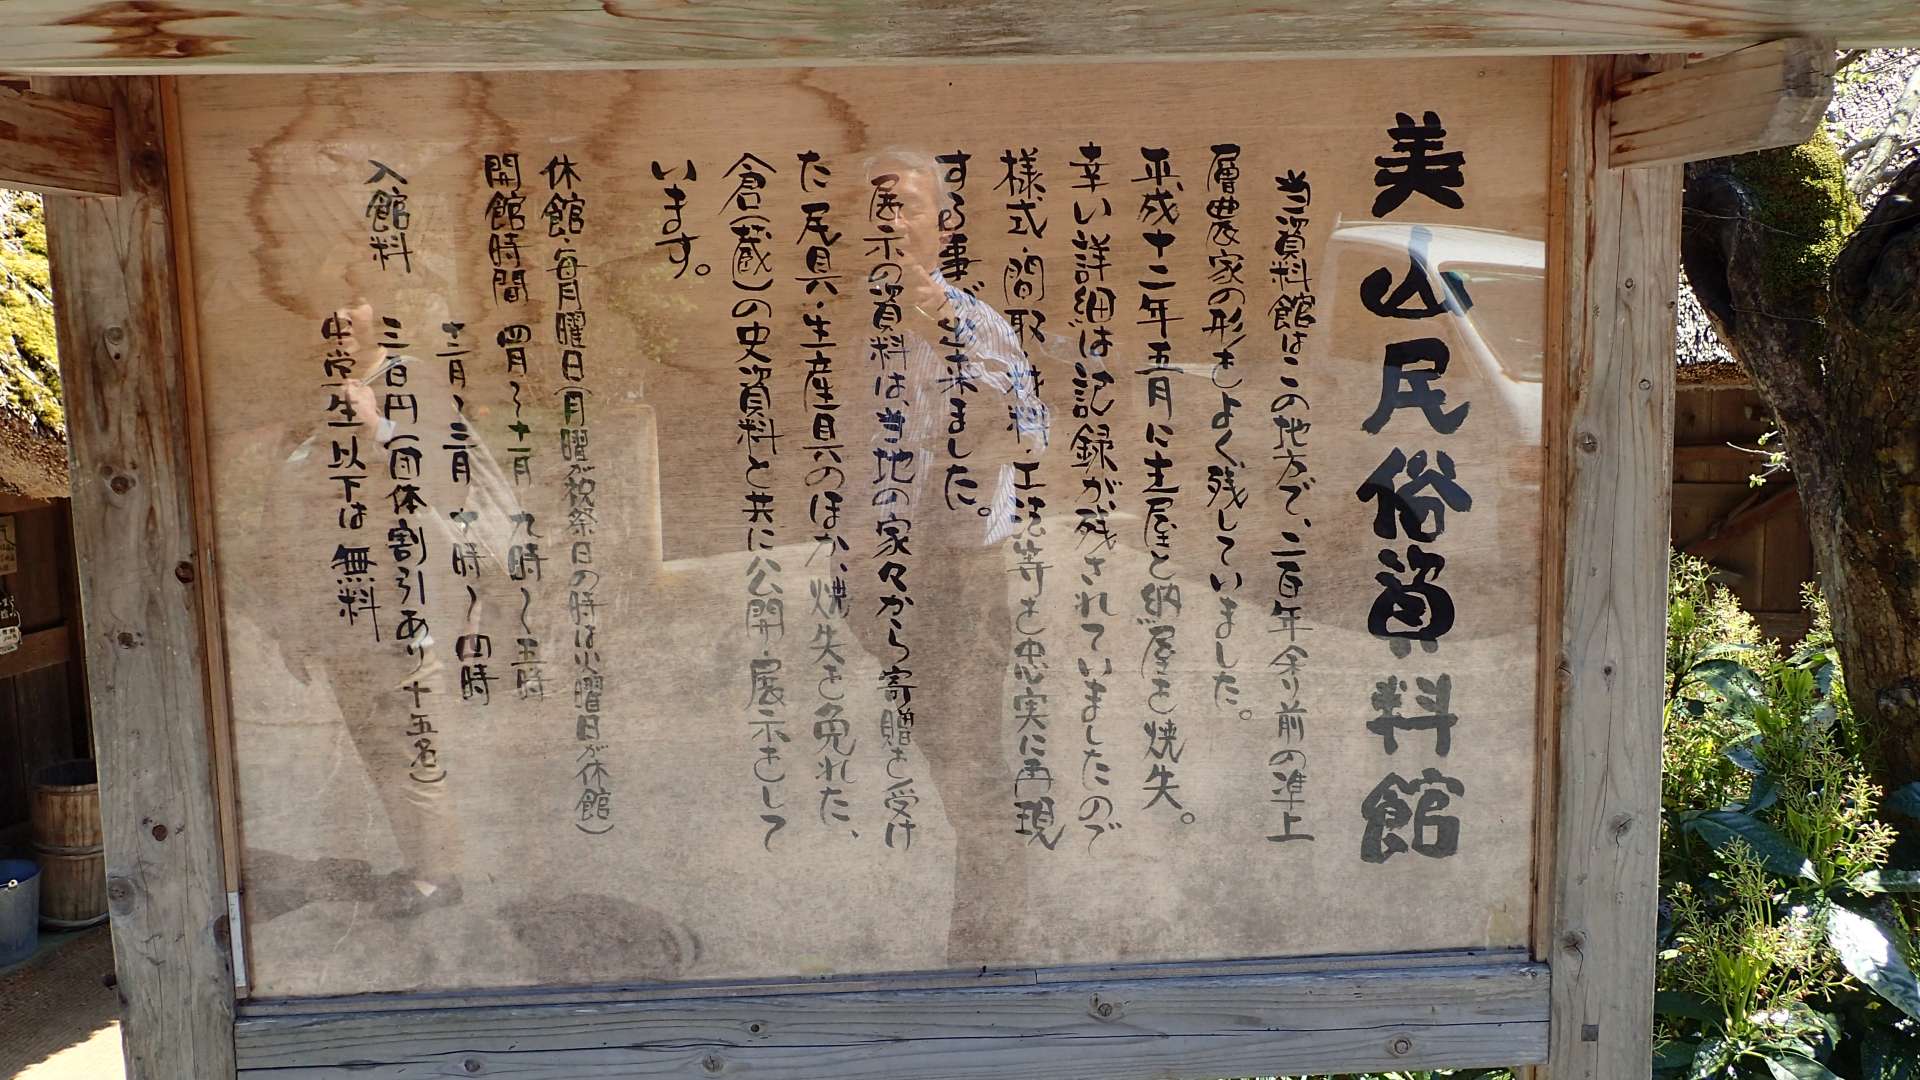 美山民俗資料館
当資料館はこの地方で、二百年余り前の準上
層農家の形をよく残していました。
平成十二年五月に主屋と納屋を焼失。
幸い詳細は記録が残されていましたので
様式・間取・材料・工法等を忠実に再現
する事が出来ました。
展示の資料は、当地の家々から寄贈を受け
た民具・生産具のほか、焼失を免れた、
倉(蔵)の史資料と共に公開・展示をして
います。
休館・毎月曜日(月曜が祝祭日の時は火曜日が休館)
開館時間 四月〜十一月 九時〜五時
十二月〜三月 十時〜四時
入館料 三百円(団体割引あり十五名)
中学生以下は無料